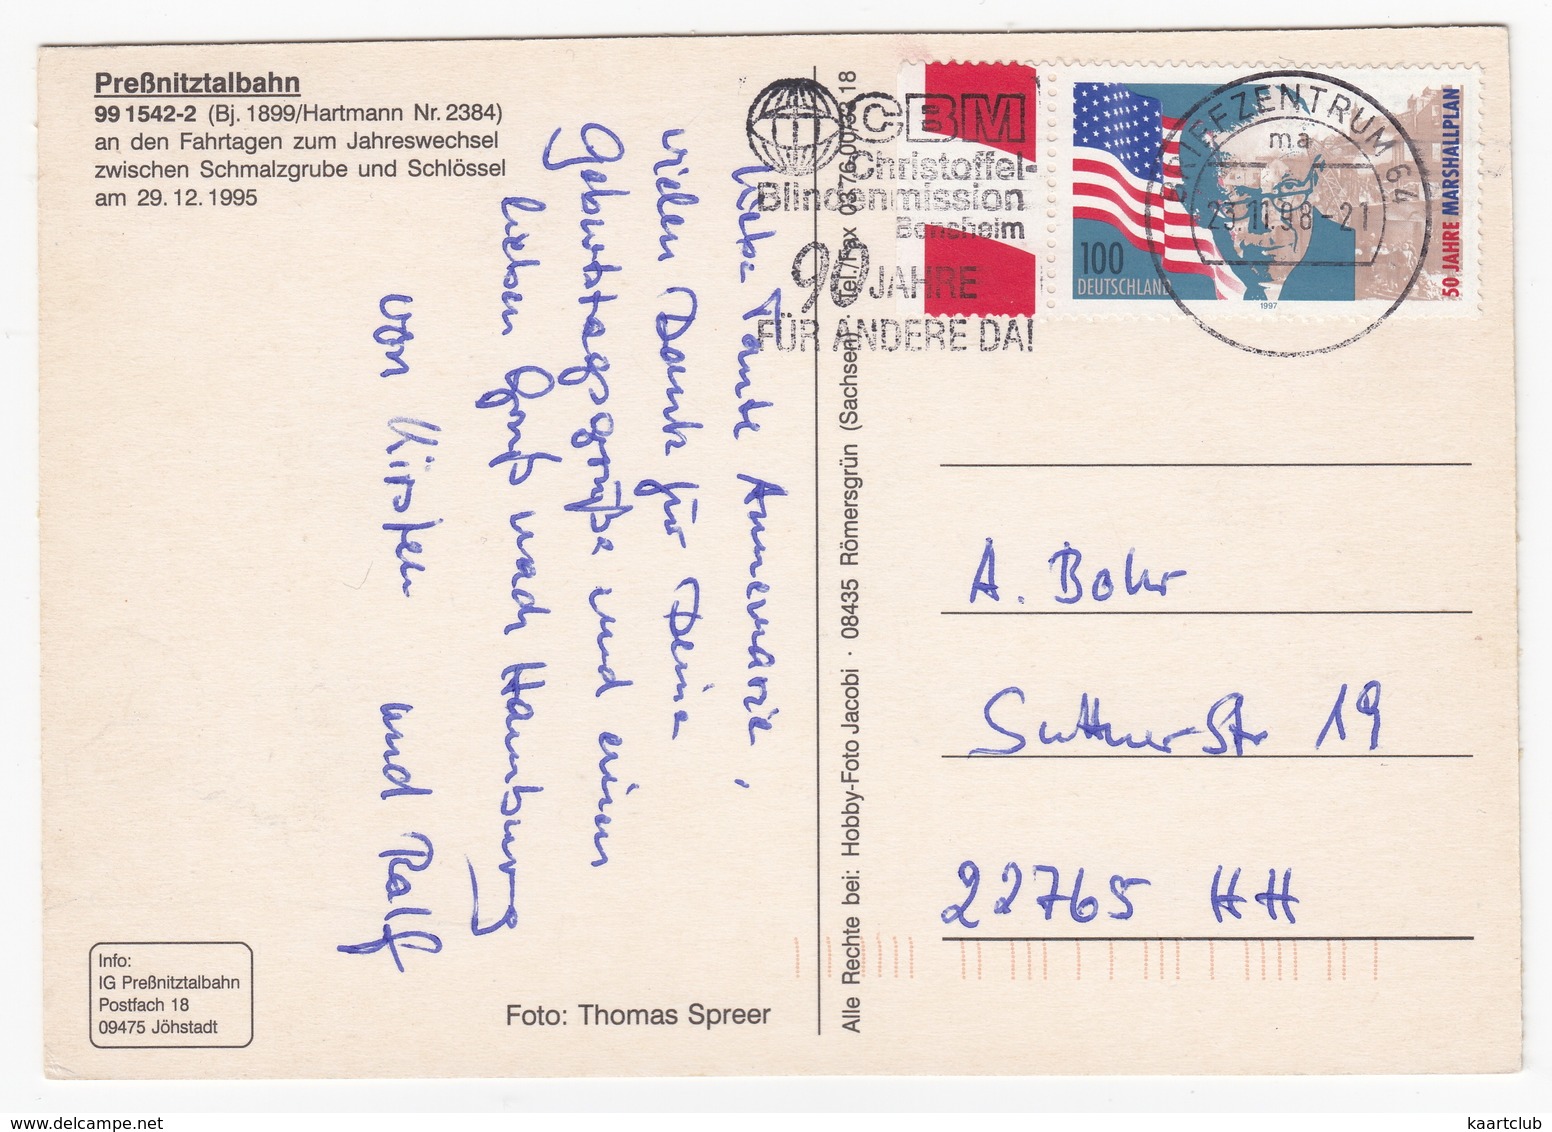 Preßnitztalbahn
99 1542-2 (Bj. 1899/Hartmann Nr. 2384)
an den Fahrtagen zum Jahreswechsel
zwischen Schmalzgrube und Schlössel
am 29.12.1995
Liebe Tante Annemarie,
vielen Dank für Deine
Geburtstagsgrüße und einen
lieben Gruß nach Hamburg
von Kirsten und Ralf
Info:
IG Preßnitztalbahn
Postfach 18
09475 Jöhstadt
Foto: Thomas Spreer
Alle Rechte bei: Hobby-Foto Jacobi · 08435 Römersgrün (Sachsen) · Tel./Fax 03 76 00/33 18
CBM
Christoffel-
Blindenmission
Bensheim
90 JAHRE
FÜR ANDERE DA!
100
DEUTSCHLAND
1997
50 JAHRE MARSHALLPLAN
BRIEFZENTRUM 64
ma
23.11.98-21
A. Bohr
Suttner Str 19
22765 HH
kaartclub